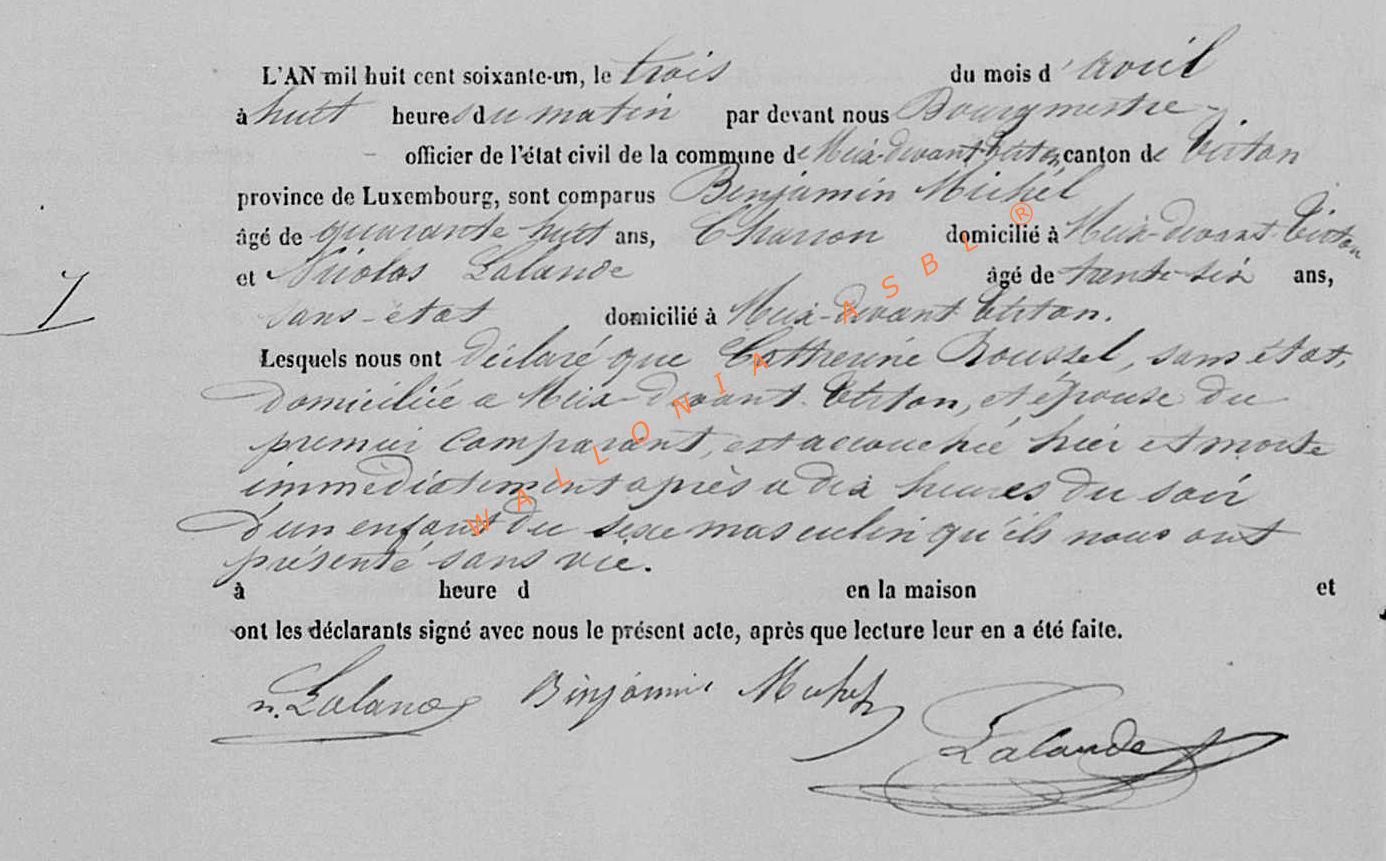 L'AN mil huit cent soixante-un, le trois du mois d'avril
à huit heures du matin par devant nous Bourgmestre
officier de l'état civil de la commune de Meix-devant-Virton, canton de Virton
province de Luxembourg, sont comparus Benjamin Michel
âgé de quarante huit ans, Charron domicilié à Meix-devant Virton
et Nicolas Lalande âgé de trente six ans,
sans-état domicilié à Meix-devant Virton.
7
Lesquels nous ont déclaré que Catherine Roussel, sans état,
domiciliée a Meix-devant-Virton, et épouse du
premier comparant, est accouchée hier et morte
immédiatement après a dix heures du soir
d'un enfant du sexe masculin qu'ils nous ont
présenté sans vie.
à heure d en la maison et
ont les déclarants signé avec nous le présent acte, après que lecture leur en a été faite.
n. Lalande Binjamin Michel
Lalande
WALLONIA ASBL ®